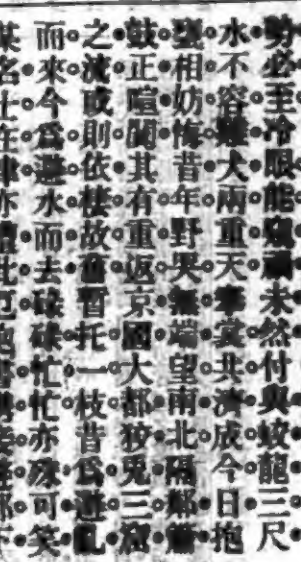 勢必至冷眼能窺禍未然付與蛟龍三尺
水不容雞犬兩重天裳共濟成今日抱
甕相妨悔昔年野哭無端望南北隔鄰簫
鼓正喧闐其有重返京國大都狡兔三窟
之流或則依棲故舊暫托一枝昔爲避亂
而來今爲避水而去碌碌忙忙亦殊可笑
某名士在津亦遭此厄